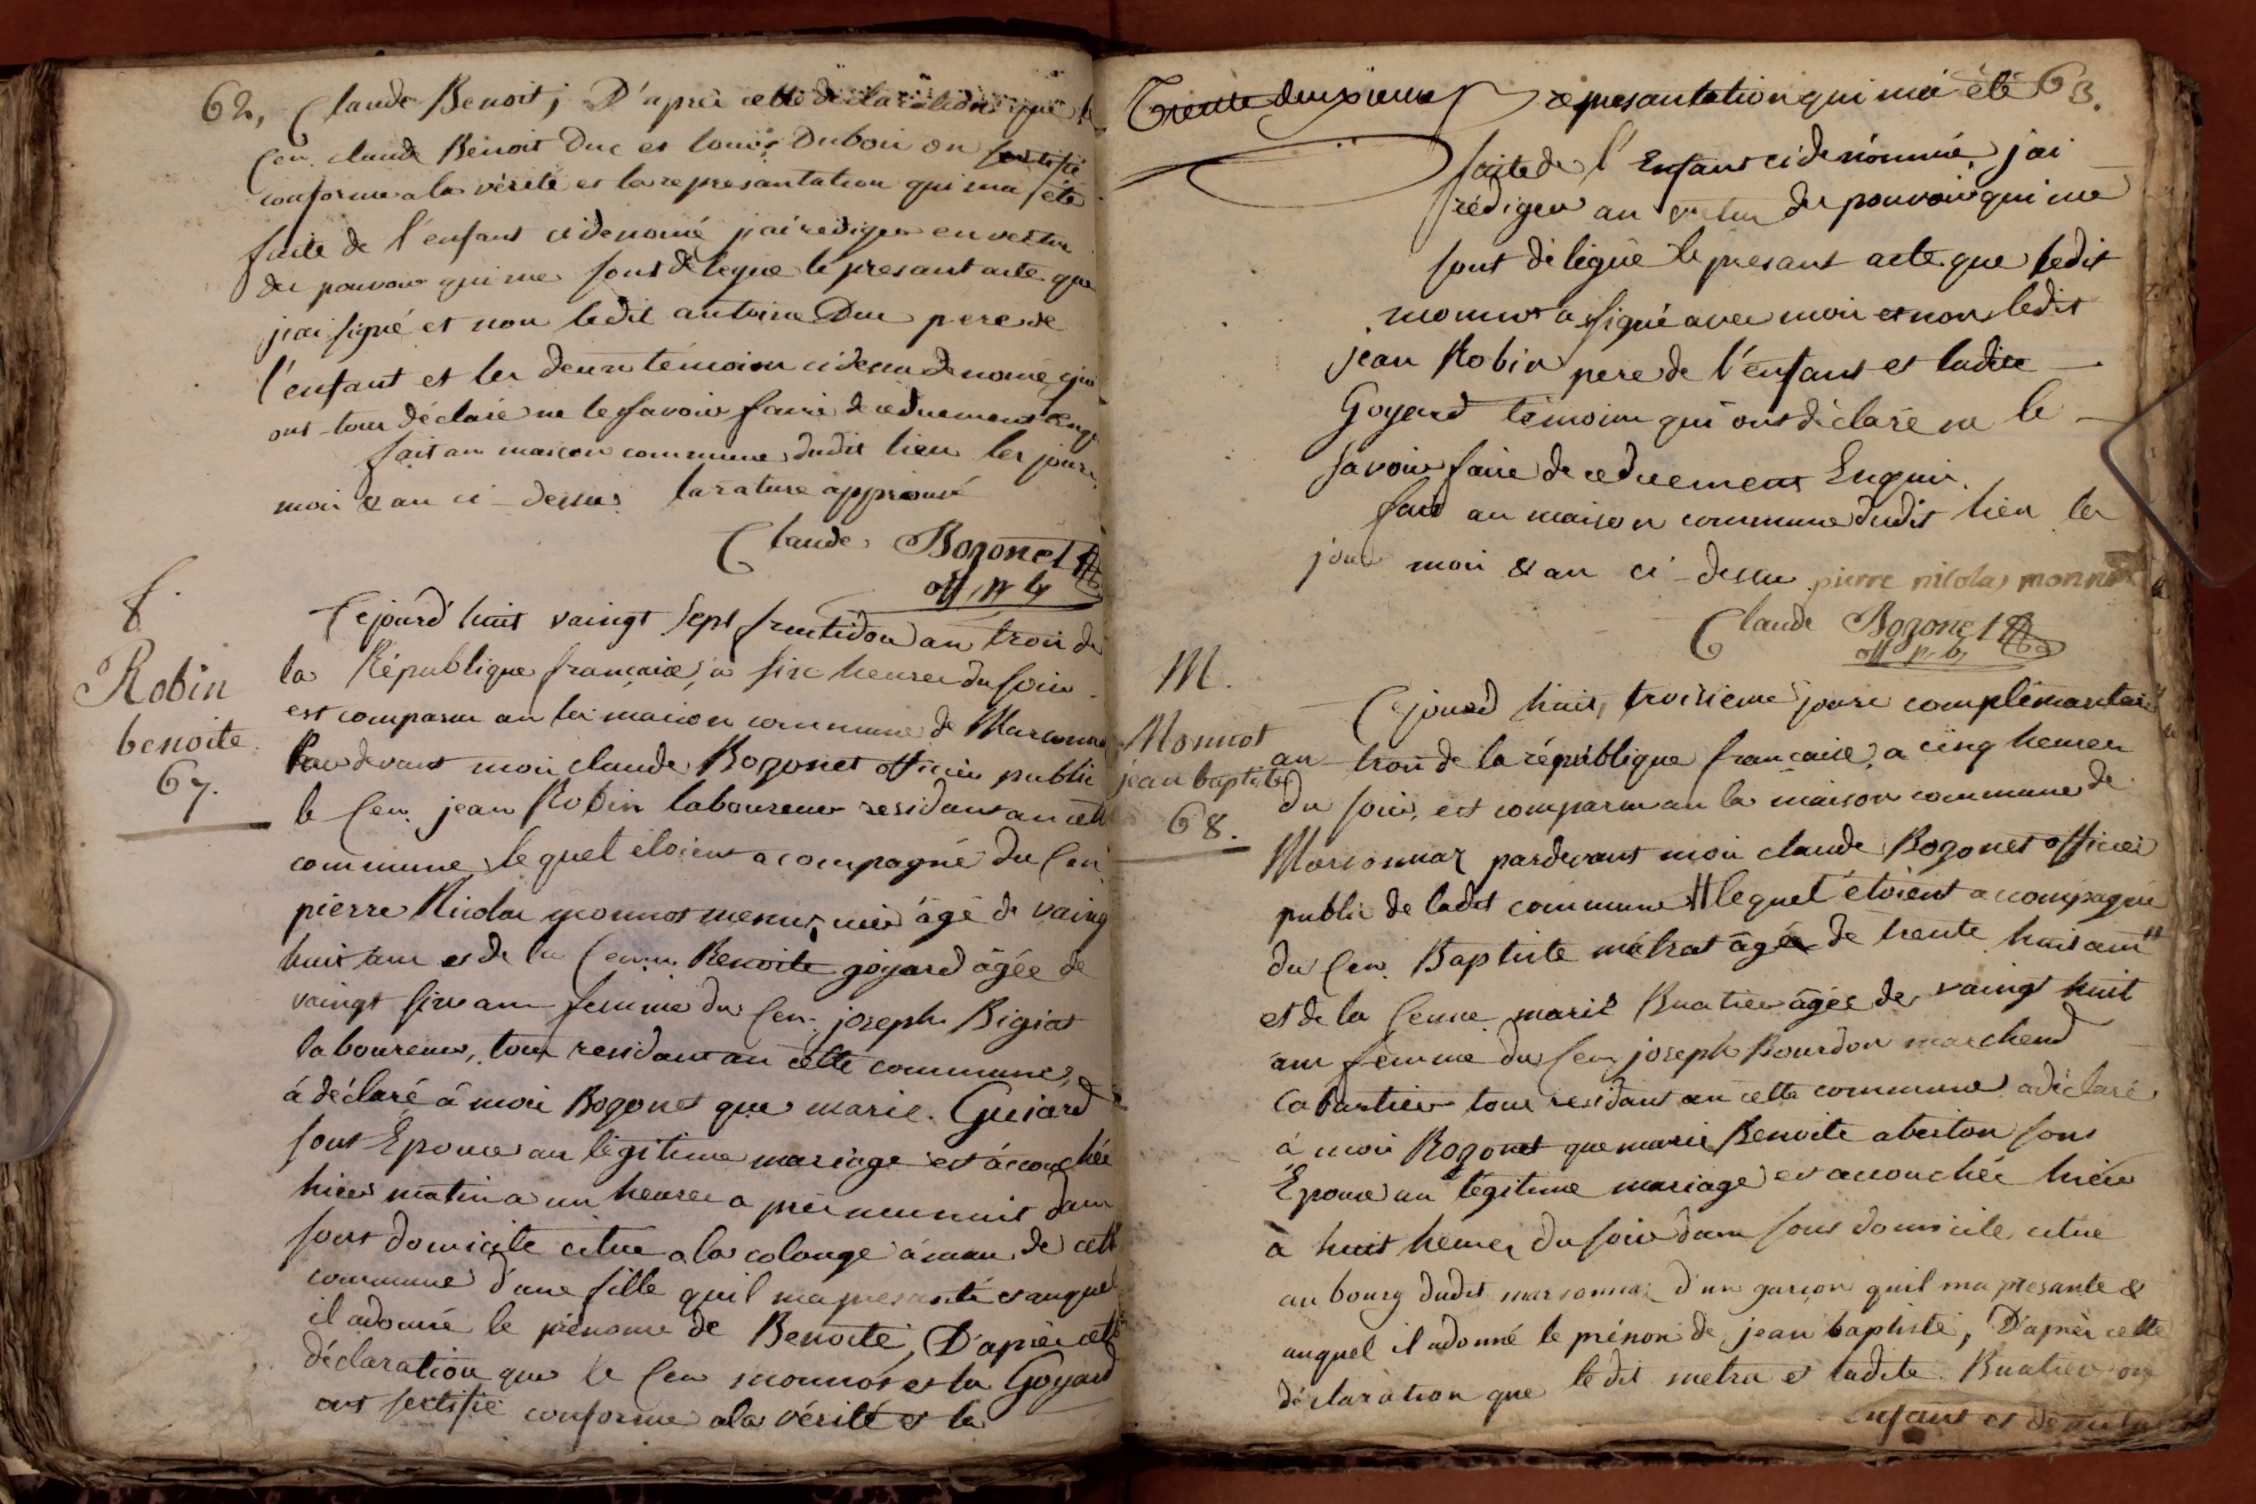 62,
Claude Benoit; D'après cette déclaration que le
Cen. claude Benoit Duc et louis Duboin on sertifié
conforme a la vérité et la represantation qui ma été
faite de l'enfant cidenomé jai rediger en vertu
des pouvoir qui me sont délegué le presant acte que
jai signé et non ledit antoine Duc pere de
l'enfant et les deux témoins cidessu denomé qui
ont tous déclaré ne le savoir faire de ceduement Enqui
fait an maison commune dudit lieu les jours,
mois & an ci-dessus la rature approuvé
Claude Bozonet
off. p b
f.
Robin
benoite
67.
Cejourd huit vaingt sept fructidor an trois de
la République francaise, a six heures du soir
est comparu an la maison commune de Marsonna
Pardevant moi claude Bozonet officier public
le Cen. jean Robin laboureur residant an cette
commune lequel étoient acompagné du Cen
pierre Nicolas monnot menusier âgé de vaingt
huit ans et de la Cenne. Benoite goyard âgée de
vaingt six ans femme du Cen. joseph Bigiat
laboureur, tous residant an cette commune,
á déclaré á moi Bozonet que marie Guiard
sont Epouse an légitime mariage est acouchée
hier matin a un heures après minuit dans
sont domicile citue a la colonge áman de cette
commune d'une fille quil ma presanté et auquel
il adonné le prénome de Benoite, D'après cette
déclaration que le Cen monnot et la Goyard
ont sertifié conforme a la vérité et la
Trente deuxieme
represantation qui má été
63.
faite de l'Enfant cidenommé, jai
rédiger an vertu des pouvoir qui me
sont délégué le presant acte que ledit
monnot a signé avec moi et non ledit
jean Robin pere de l'enfant et ladite
Goyard témoins qui ont déclaré ne le
savoir faire de ceduement Enquis.
fait an maison commune dudit lieu les
jour mois & an ci-dessu pierre nicolas monnot
Claude Bozonet
off p. b,
M.
Monnot
jean baptiste
68.
Cejourd huit, troisieme jours complémantaire
an trois de la république francaise, a cinq heures
du soir, est comparu an la maison commune de
Marsonnaz pardevant moi claude Bozonet officier
public de ladit commune # lequel étoient accompagné
du Cen. Baptiste métrat âgé de trente huit ans
et de la Cenne marie Buatier âgée de vaingt huit
ans femme du Cen. joseph Bourdon marchend
Cabartier tous residant an cette commune a déclaré
á moi Bozonet que marie Benoite abeiton sont
Epouse an légitime mariage est acouchée hiér
à huit heures du soir dans sont domicile citué
au bourg dudit marsonnaz d'un garçon quil ma presante &
auquel il adonné le prénon de jean baptiste, D'après cette
déclaration que ledit metra et ladite Buatier on